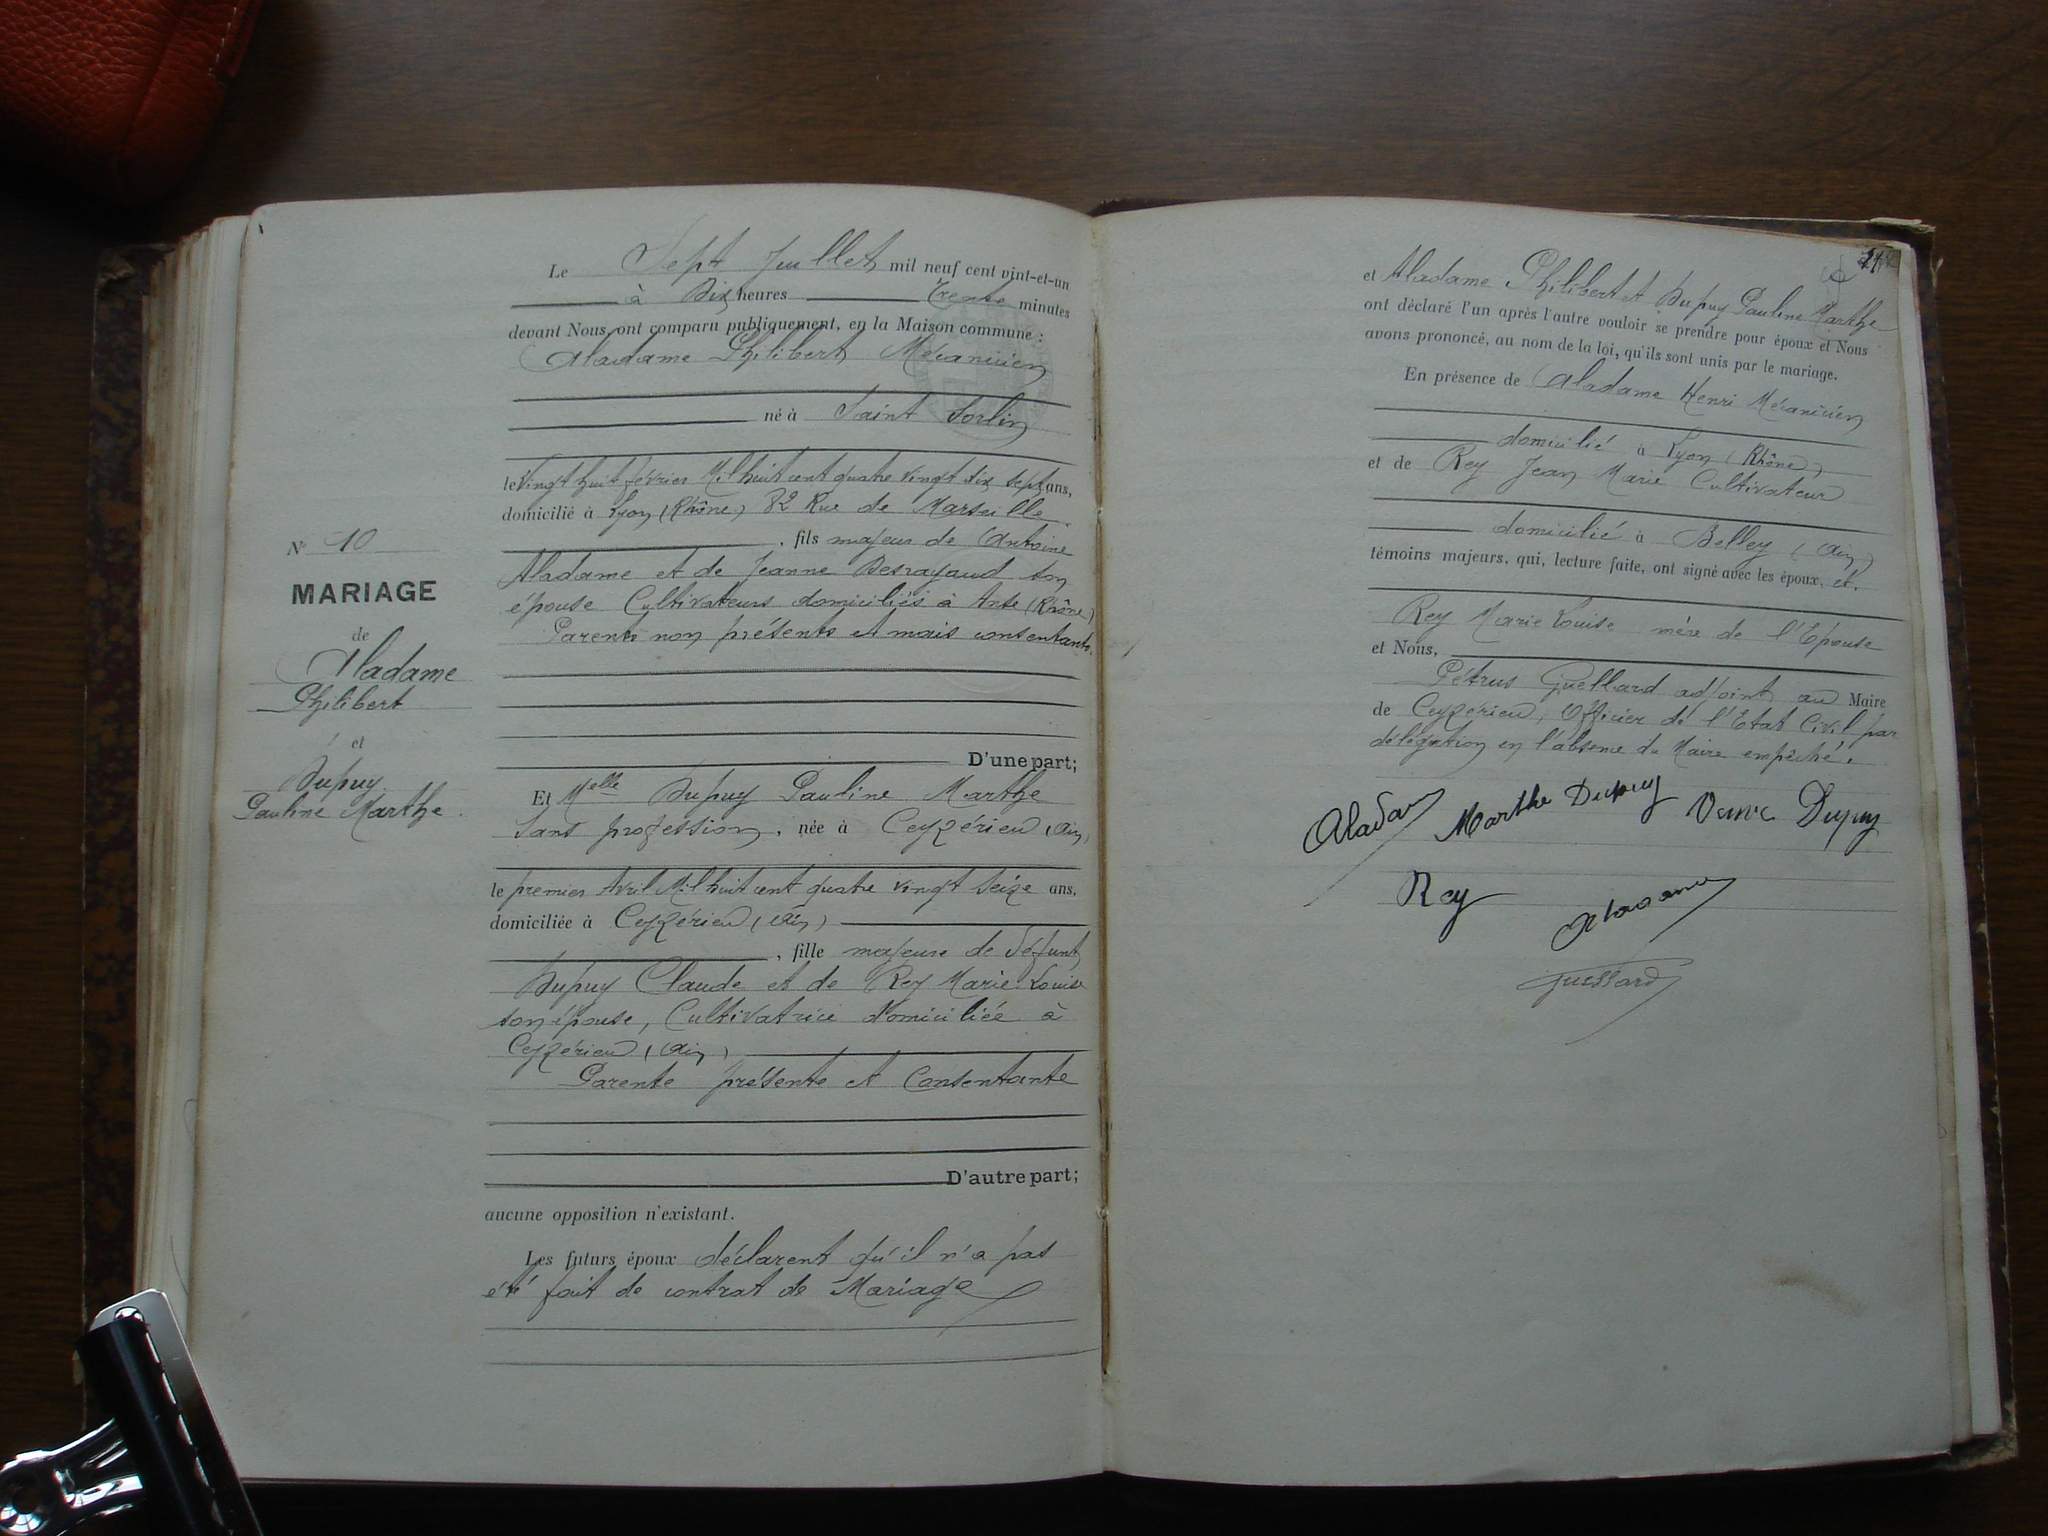 Le Sept Juillet mil neuf cent vint-et-un
à Dix heures Trente minutes
devant Nous ont comparu publiquement, en la Maison commune :
Aladame Philibert Mécanicien
né à Saint Sorlin
le Vingt huit février Mil huit cent quatre vingt dix sept ans,
domicilié à Lyon (Rhône) 82 Rue de Marseille
, fils majeur de Antoine
Aladame et de Jeanne Desrayaud son
épouse Cultivateurs domiciliés à Anse (Rhône)
Parents non présents et mais consentants.
D'une part;
N° 10
MARIAGE
de
Aladame
Philibert
et
Dupuy
Pauline Marthe.
Et Melle Dupuy Pauline Marthe
Sans profession, née à Ceyzérieu (Ain)
le premier Avril Mil huit cent quatre vingt seize ans,
domiciliée à Ceyzérieu (Ain)
, fille majeure de défunt
Dupuy Claude et de Rey Marie Louise
son épouse, Cultivatrice domiciliée à
Ceyzérieu (Ain)
Parente présente et Consentante
D'autre part;
aucune opposition n'existant.
Les futurs époux déclarent qu'il n'a pas
été fait de contrat de Mariage
et Aladame Philibert et Dupuy Pauline Marthe
ont déclaré l'un après l'autre vouloir se prendre pour époux et Nous
avons prononcé, au nom de la loi, qu'ils sont unis par le mariage.
En présence de Aladame Henri Mécanicien
domicilié à Lyon (Rhône)
et de Rey Jean Marie Cultivateur
domicilié à Belley (Ain)
témoins majeurs, qui, lecture faite, ont signé avec les époux, et.
Rey Marie Louise mère de l'Epouse
et Nous,
Pétrus Guellard adjoint au Maire
de Ceyzérieu, Officier de l'Etat Civil par
délégation en l'absence du Maire empêché.
Aladam Marthe Dupuy Veuve Dupuy
Rey Aladame
Guellard